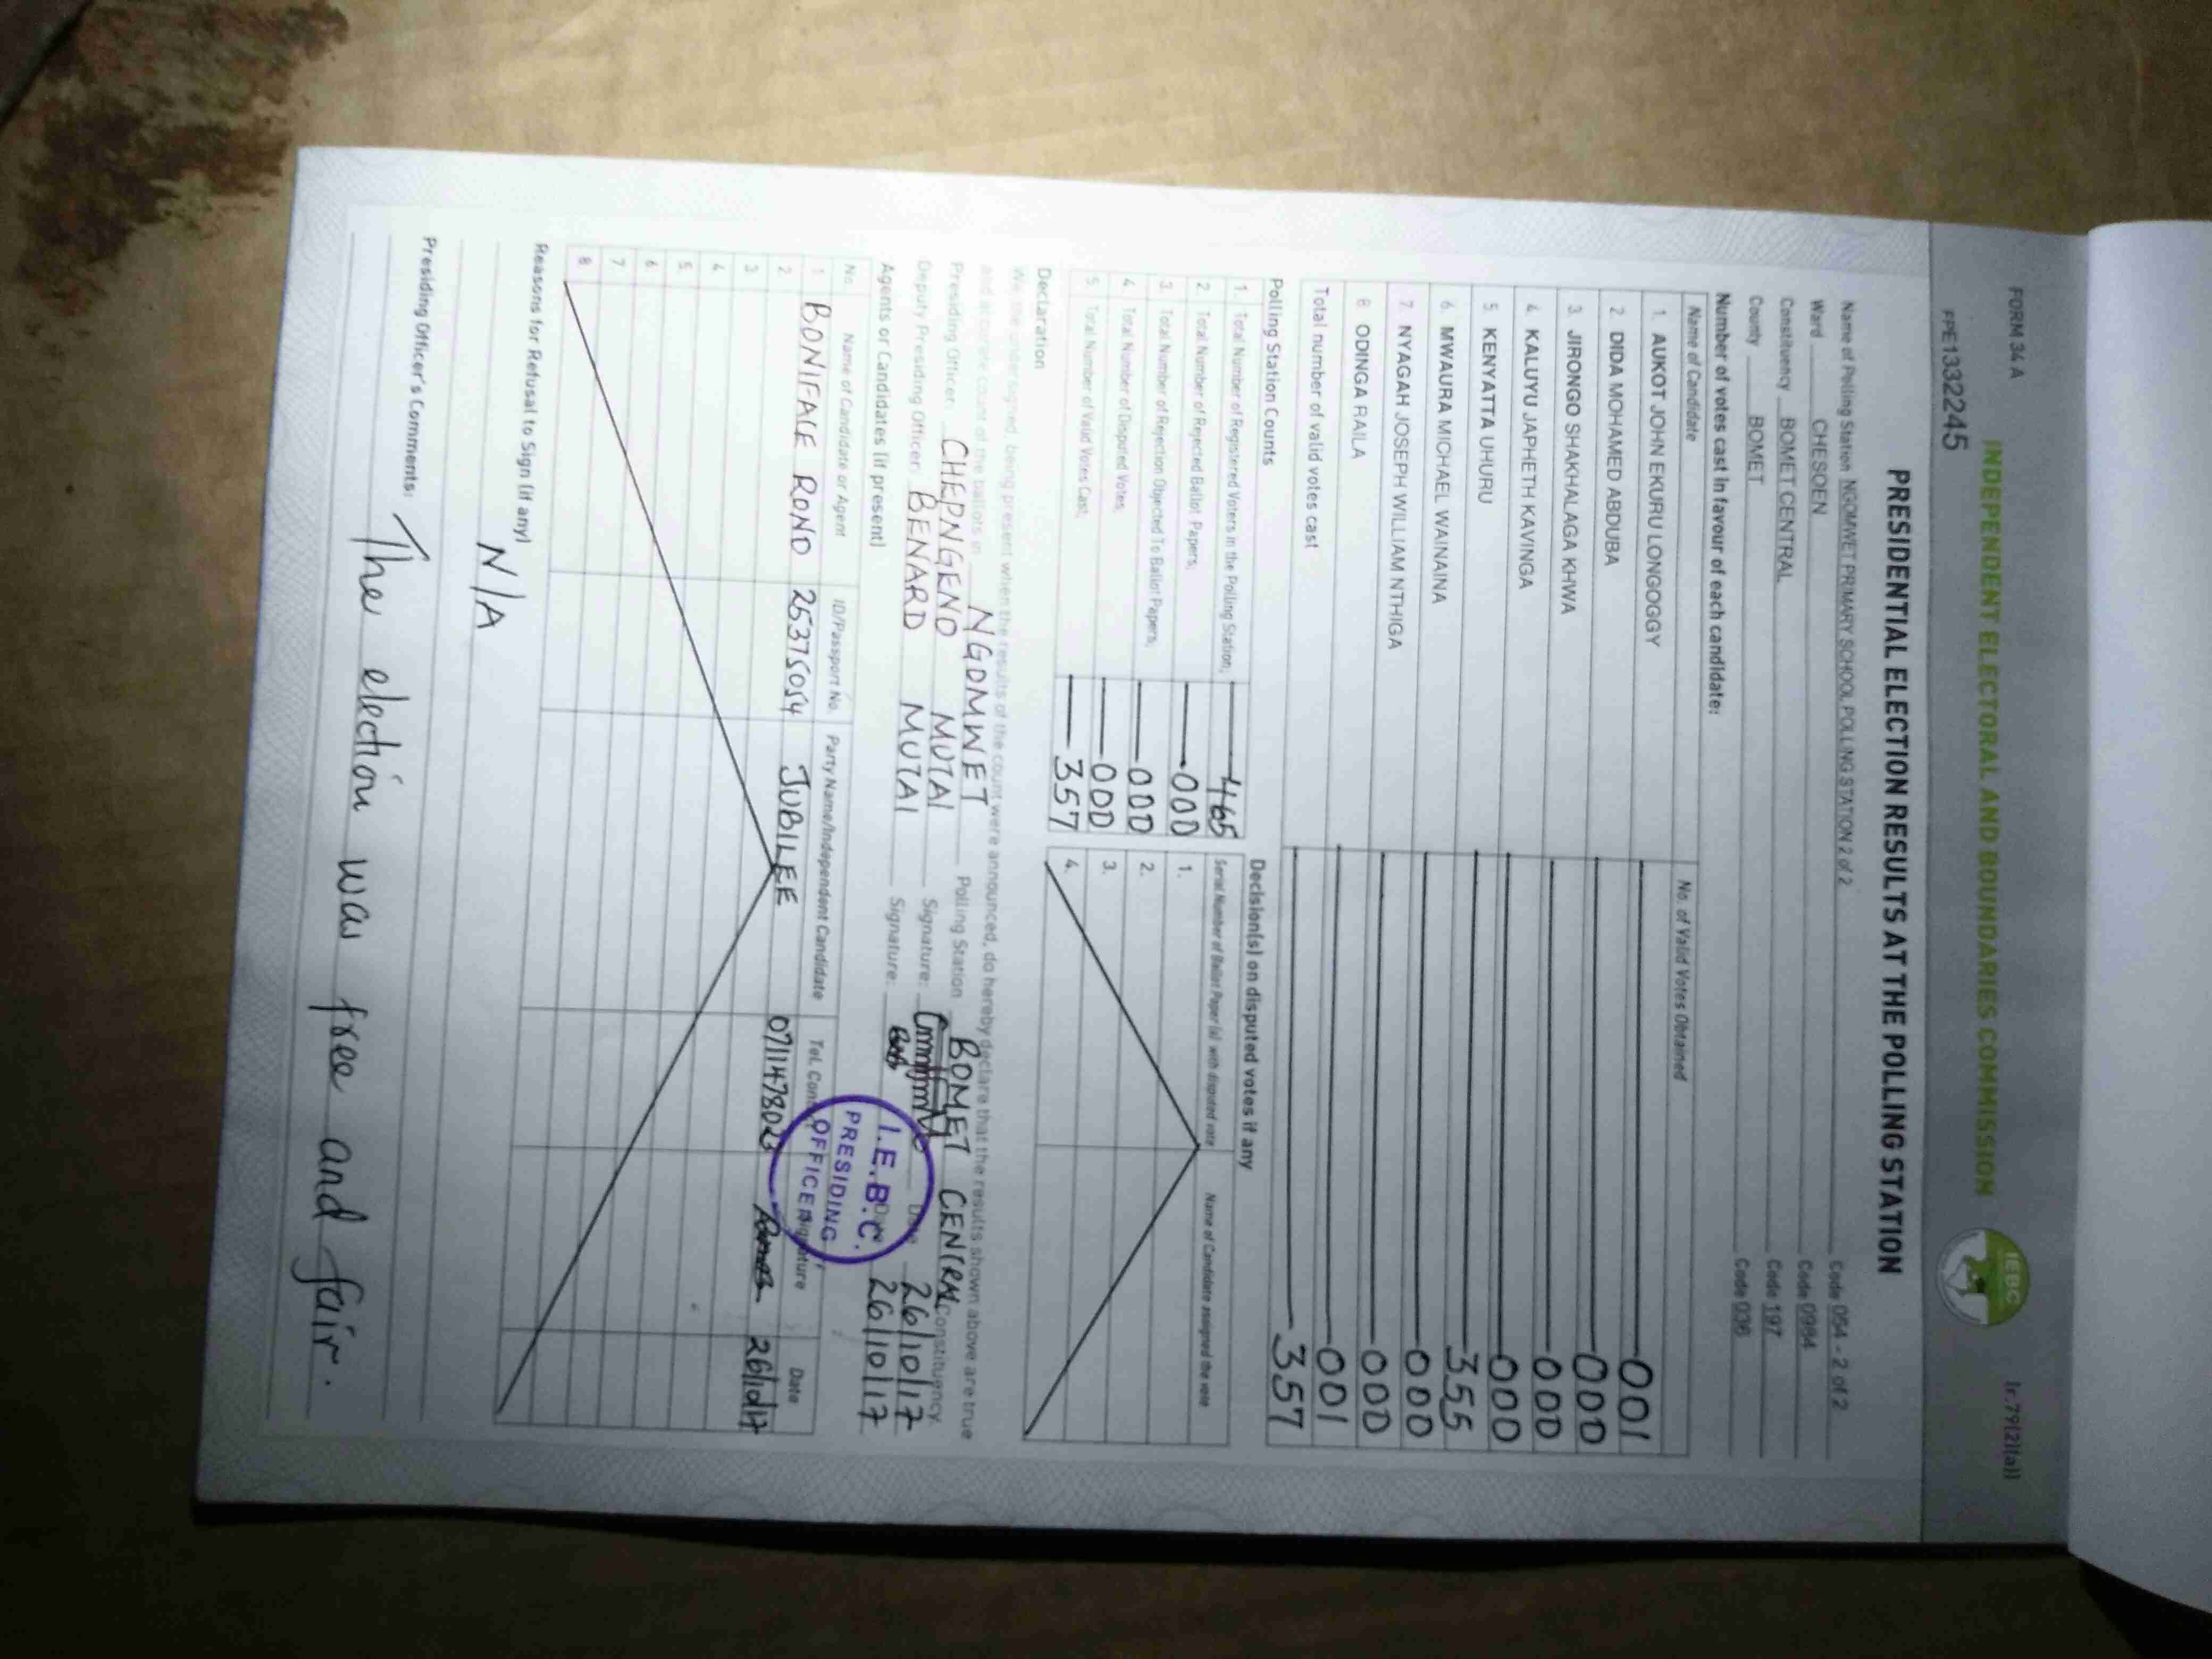 FORM 34 A
(r.79(2)(a))
INDEPENDENT ELECTORAL AND BOUNDARIES COMMISSION
IEBC
FPE1332245
PRESIDENTIAL ELECTION RESULTS AT THE POLLING STATION
Name of Polling Station NGOMWET PRIMARY SCHOOL POLLING STATION 2 of 2 Code 054 - 2 of 2
Ward CHESOEN Code 0984
Constituency BOMET CENTRAL Code 197
County BOMET Code 036
Number of votes cast in favour of each candidate:
Name of Candidate No. of Valid Votes Obtained
1. AUKOT JOHN EKURU LONGOGGY 001
2. DIDA MOHAMED ABDUBA 000
3. JIRONGO SHAKHALAGA KHWA 000
4. KALUYU JAPHETH KAVINGA 000
5. KENYATTA UHURU 355
6. MWAURA MICHAEL WAINAINA 000
7. NYAGAH JOSEPH WILLIAM NTHIGA 000
8. ODINGA RAILA 001
Total number of valid votes cast 357
Polling Station Counts
1. Total Number of Registered Voters in the Polling Station; 465
2. Total Number of Rejected Ballot Papers; 000
3. Total Number of Rejection Objected To Ballot Papers; 000
4. Total Number of Disputed Votes; 000
5. Total Number of Valid Votes Cast; 357
Decision(s) on disputed votes if any
Serial Number of Ballot Paper (s) with disputed vote Name of Candidate assigned the vote
1.
2.
3.
4.
Declaration
We, the undersigned, being present when the results of the count were announced, do hereby declare that the results shown above are true
and accurate count of the ballots in NGOMWET Polling Station BOMET CENTRAL Constituency.
Presiding Officer: CHEPNGENO MUTAI Signature: Date 26/10/17
Deputy Presiding Officer: BENARD MUTAI Signature: Date 26/10/17
Agents or Candidates (if present)
No. Name of Candidate or Agent ID/Passport No. Party Name/Independent Candidate Tel. Contact Signature Date
1 BONIFACE RONO 25375054 JUBILEE 26/10/17
2
3
4
5
6
7
8
I.E.B.C.
PRESIDING
OFFICER
Reasons for Refusal to Sign (if any)
N/A
Presiding Officer's Comments: The election was free and fair.